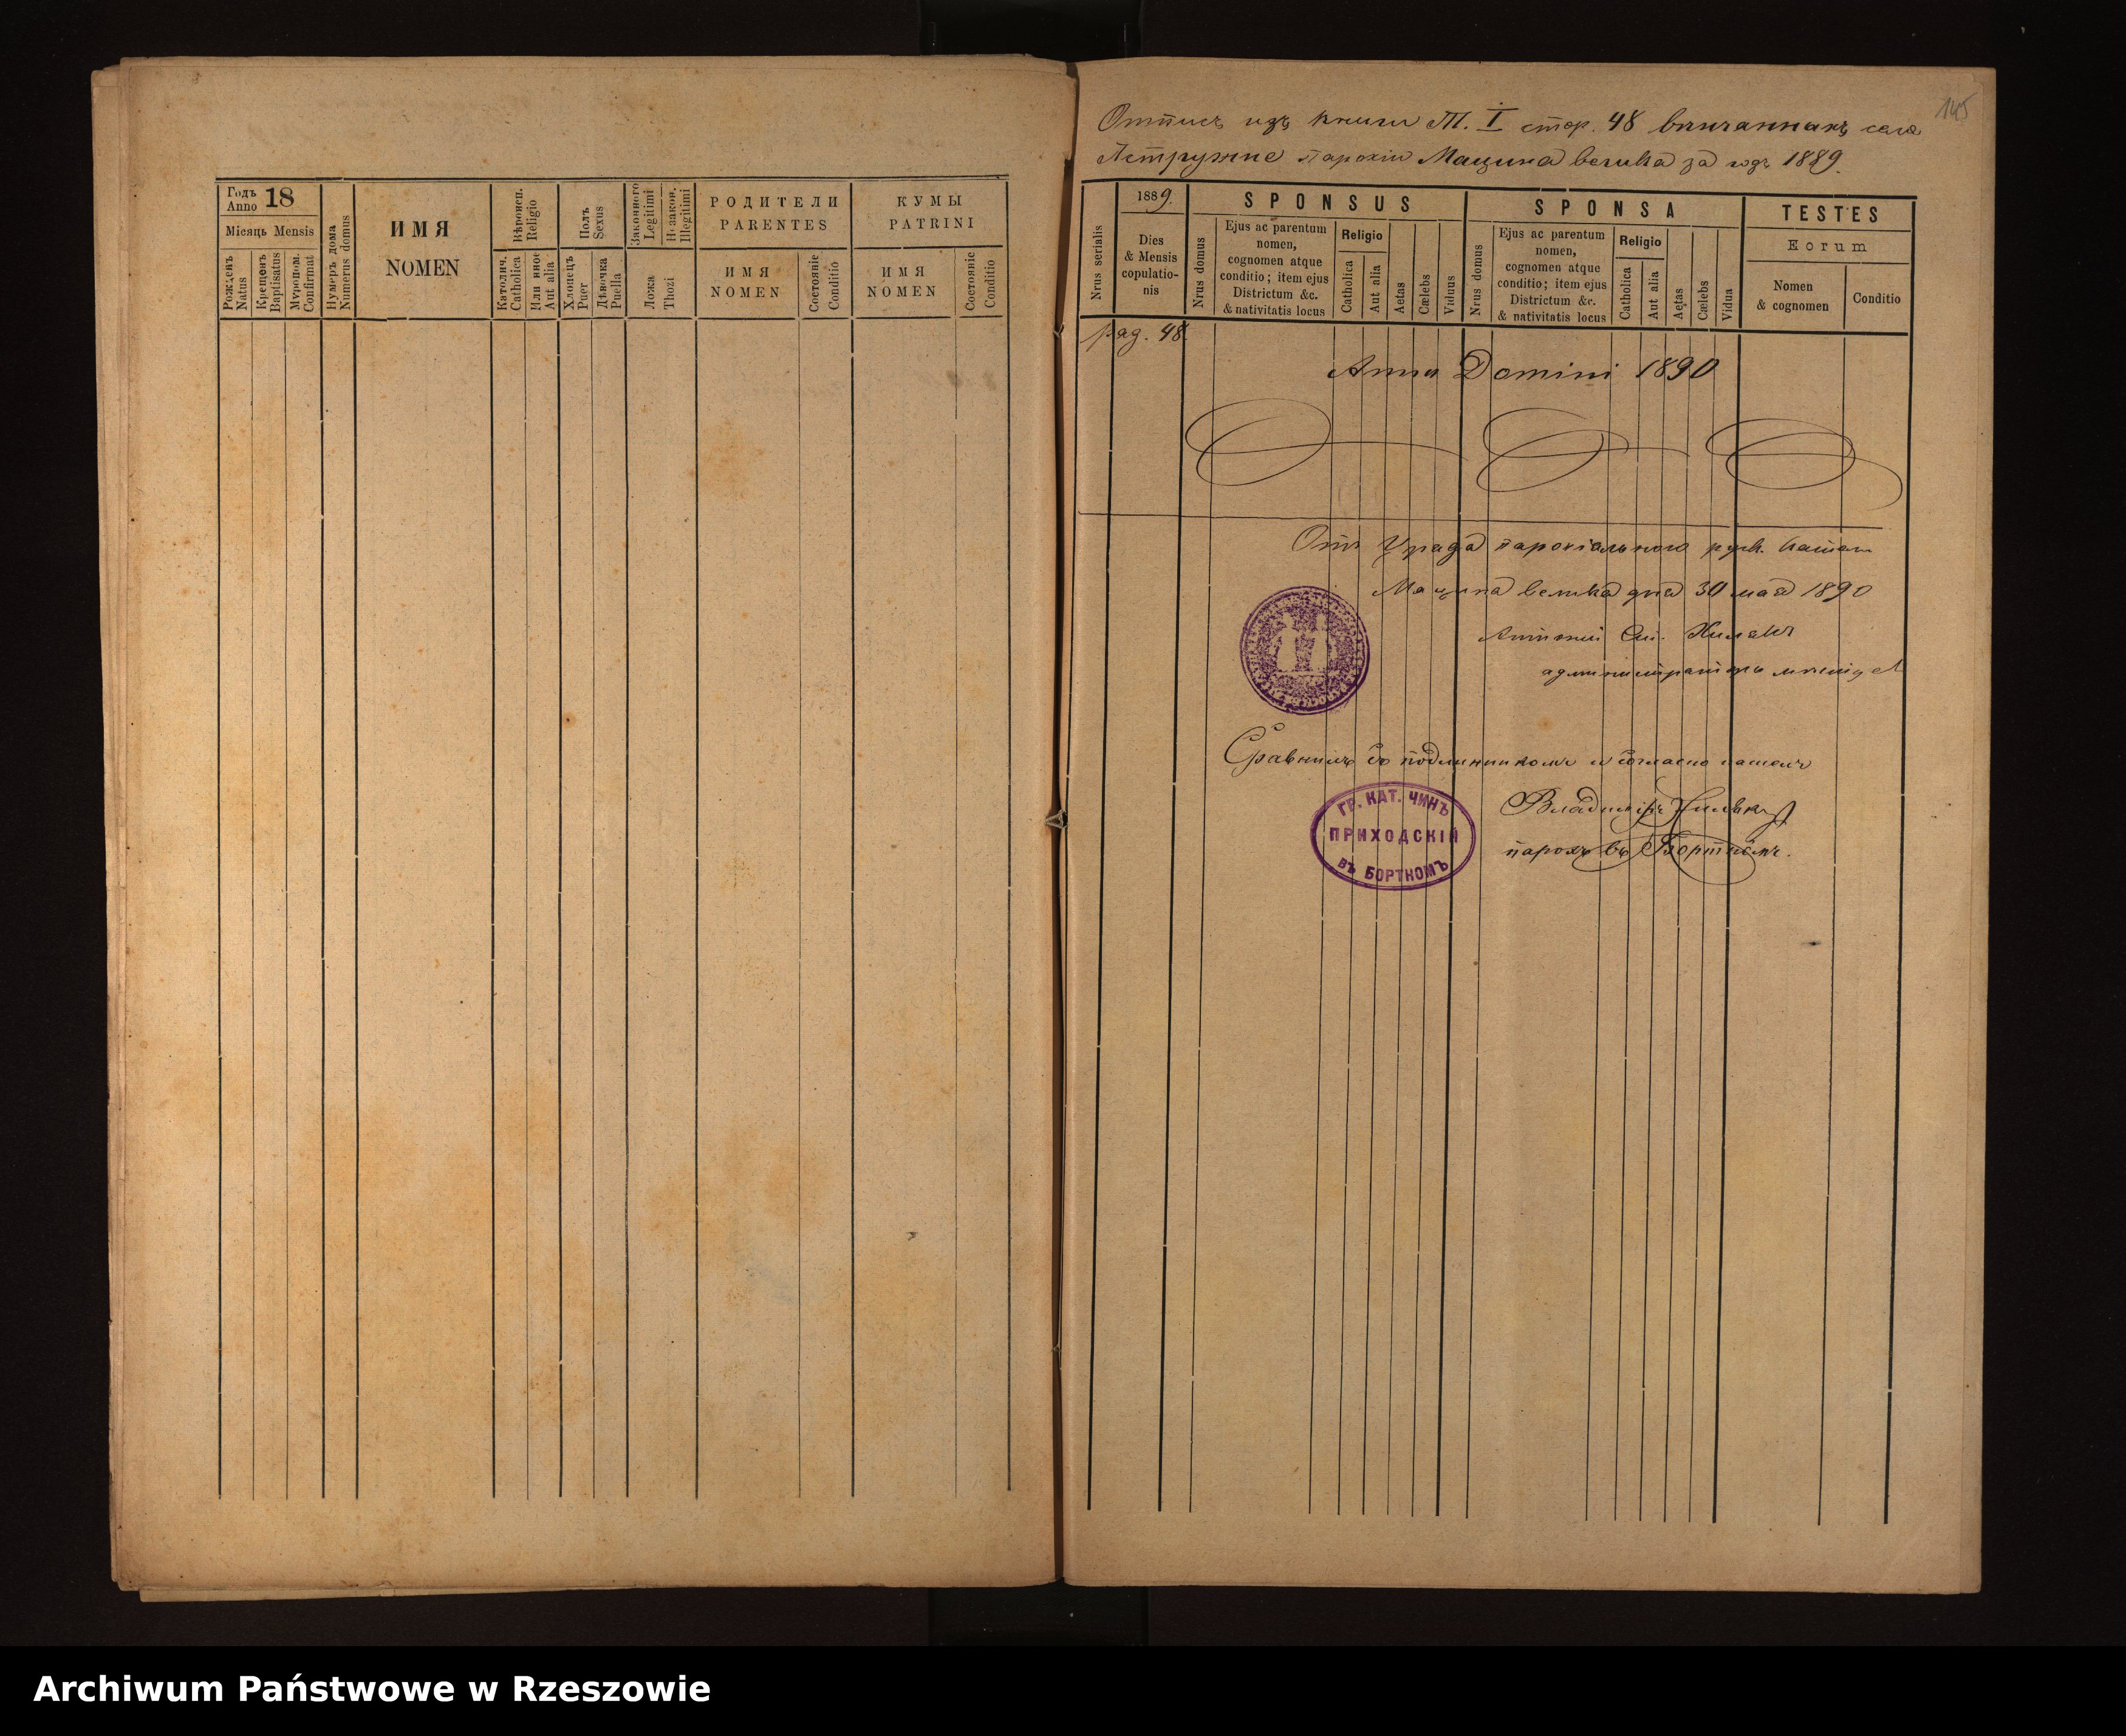 Годъ
Anno 18
Місяць Mensis
Рожденъ
Natus
Крещенъ
Baptisatus
Мѵропом.
Confirmat
Нумеръ дома
Numerus domus
ИМЯ
NOMEN
Вѣроисп.
Religio
Католич.
Catholica
Или иное
Aut alia
Полъ
Sexus
Хлопець
Puer
Дѣвочка
Puella
Законного
Legitimi
Незакон.
Illegitimi
Ложа
Thozi
РОДИТЕЛИ
PARENTES
ИМЯ
NOMEN
Состояніе
Conditio
КУМЫ
PATRINI
ИМЯ
NOMEN
Состояніе
Conditio
145
Отпись изъ книги Т. I стор. 48 села
парохіи Мацина велика за годъ 1889.
Nrus serialis
1889.
Dies
& Mensis
copulatio-
nis
SPONSUS
Nrus domus
Ejus ac parentum
nomen,
cognomen atque
conditio; item ejus
Districtum &c.
& nativitatis locus
Religio
Catholica
Aut alia
Aetas
Cælebs
Viduus
SPONSA
Nrus domus
Ejus ac parentum
nomen,
cognomen atque
conditio; item ejus
Districtum &c.
& nativitatis locus
Religio
Catholica
Aut alia
Aetas
Cælebs
Vidua
TESTES
Eorum
Nomen
& cognomen
Conditio
pag. 48.
Anno Domini 1890
Отъ Уряда парохіального
Мацина велика дня 30 мая 1890
администраторъ
со подлинникомъ и согласно
ГР. КАТ. ЧИНЪ
ПРИХОДСКІЙ
ВЪ БОРТНОМЪ
Владиміръ
парохъ въ Бортномъ.
Archiwum Państwowe w Rzeszowie